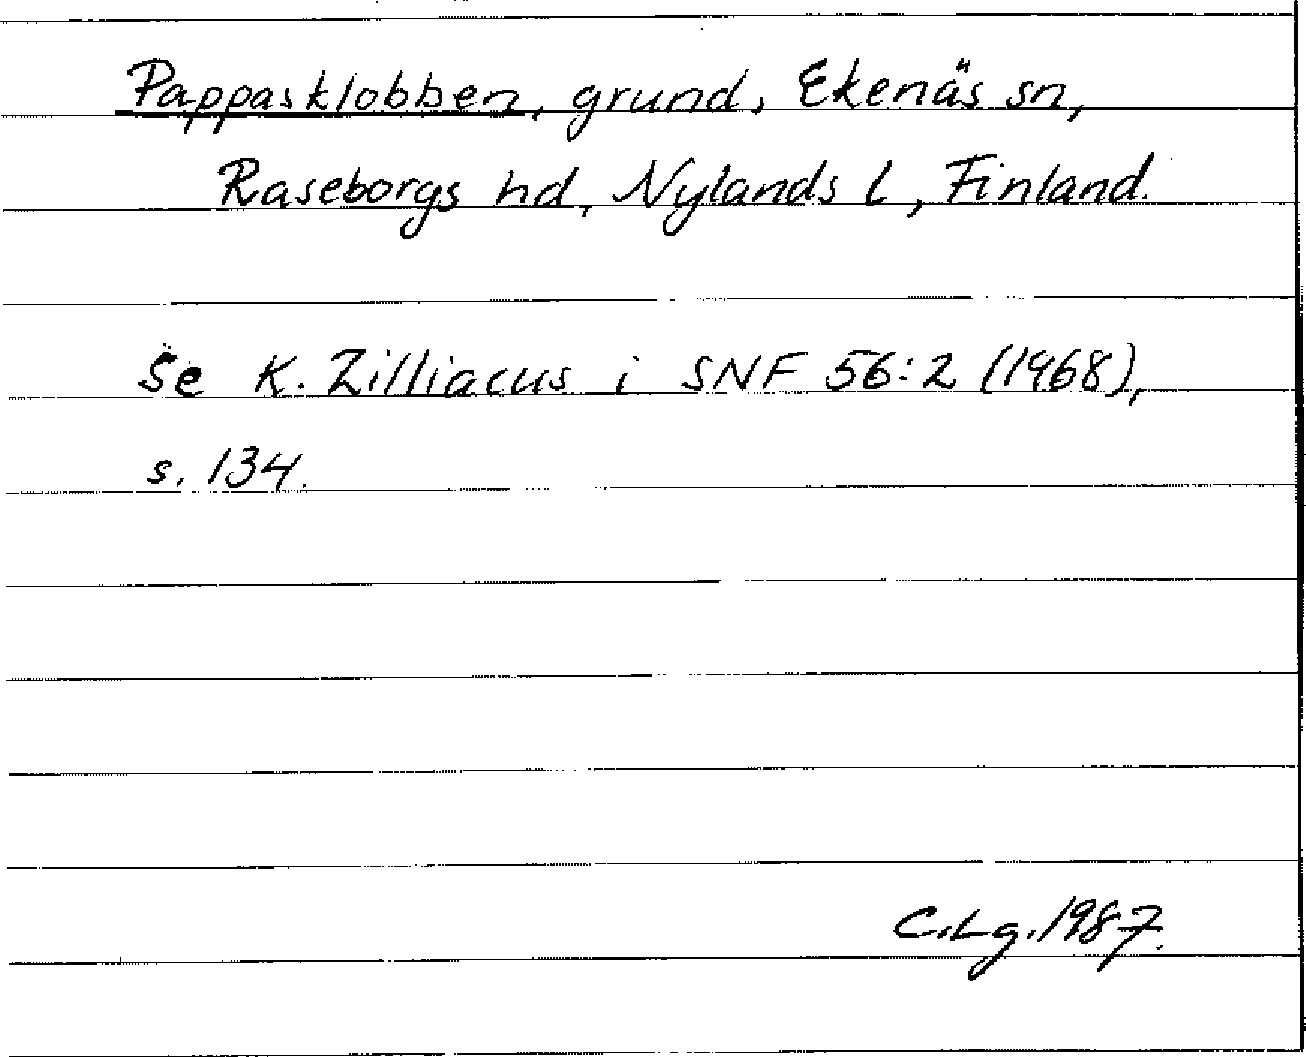 Pappasklobben, grund, Ekenäs sn,
Raseborgs hd, Nylands l, Finland.
Se K. Zilliacus i SNF 56:2 (1968),
s. 134.
C.Lg. 1987.